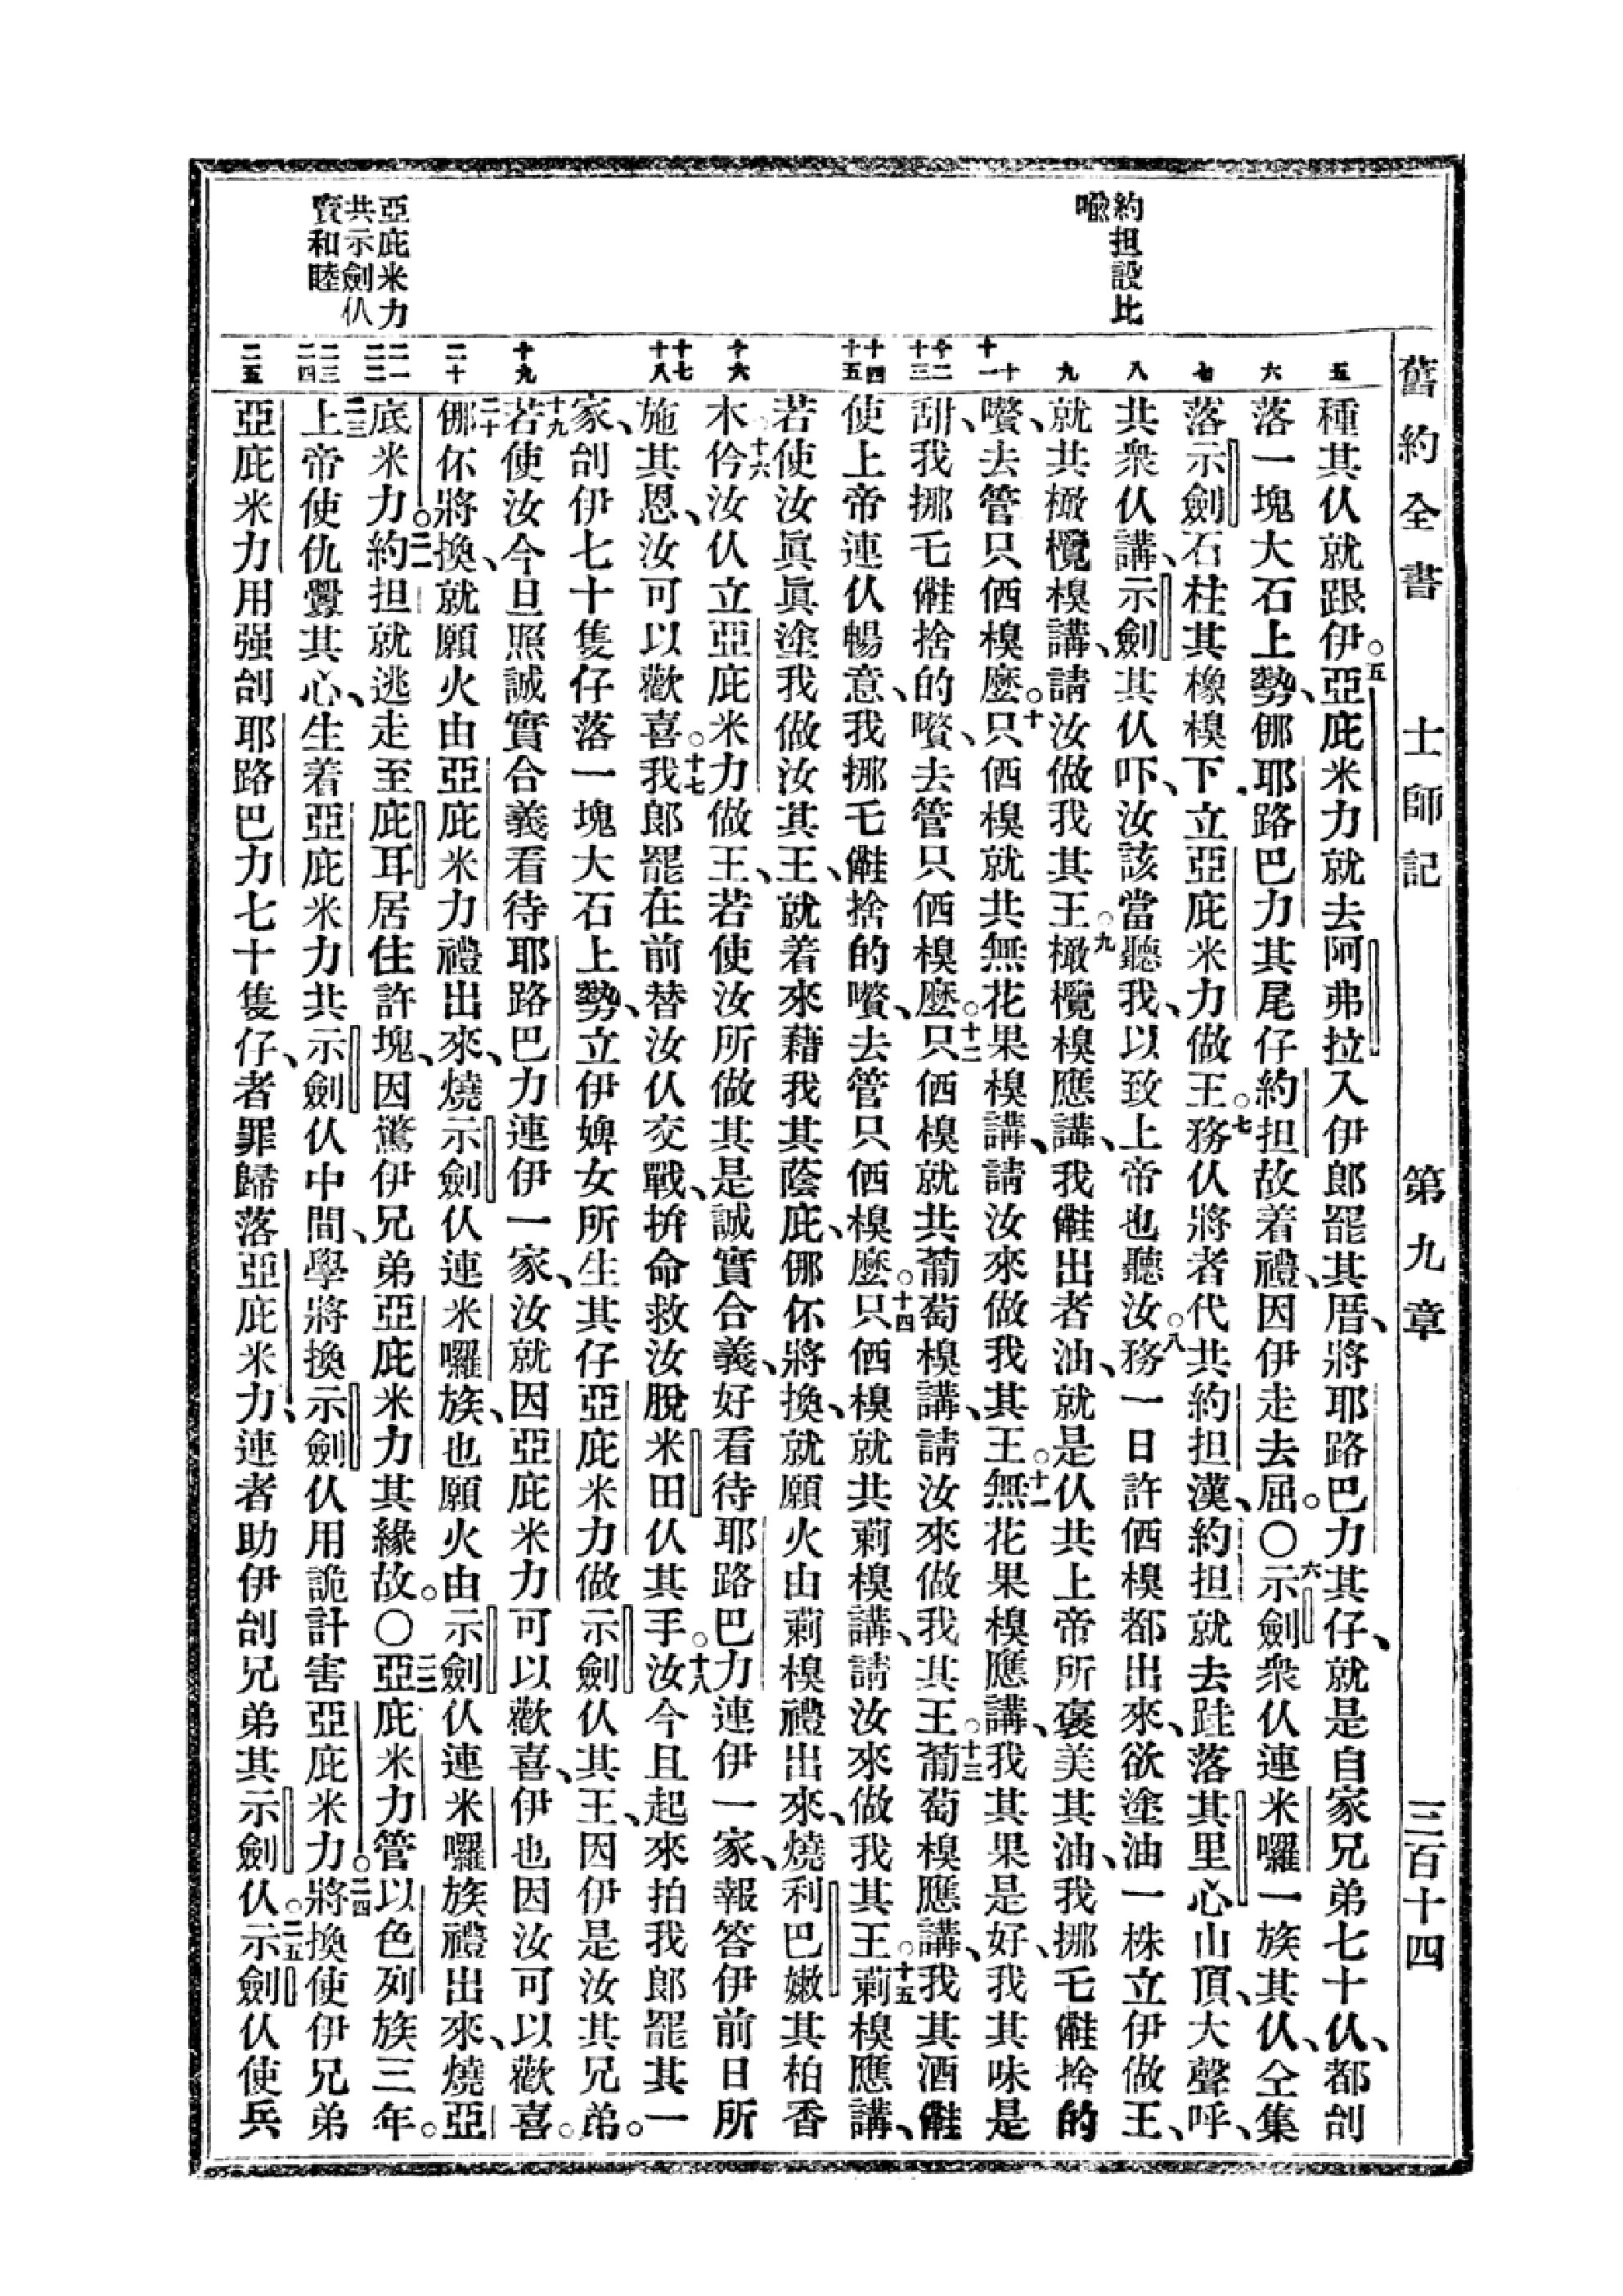 舊約全書　士師記　第九章　三百十四
約担設比
喩
亞庇米力
共示劍仈
賣和睦
五
六
七
八
九
十
十一
十二
十三
十四
十五
十六
十七
十八
十九
二十
二一
二二
二三
二四
二五
種其仈就跟伊。五亞庇米力就去阿弗拉入伊郎罷其厝、將耶路巴力其仔、就是自家兄弟七十仈、都刣
落一塊大石上勢、倻耶路巴力其尾仔約担故着禮、因伊走去屈。〇六示劍衆仈連米囉一族其仈、仝集
落示劍石柱其橡模下、立亞庇米力做王。七務仈將者代共約担漢、約担就去跬落其里心山頂、大聲呼、
共衆仈講、示劍其仈吓、汝該當聽我、以致上帝也聽汝。八務一日許㑚模都出來、欲塗油一株立伊做王、
就共橄欖模講、請汝做我其王。九橄欖模應講、我㒕出者油、就是仈共上帝所褒美其油、我挪乇㒕捨的
㘔、去管只㑚模麽。十只㑚模就共無花果模講、請汝來做我其王。十一無花果模應講、我其果是好、我其味是
甜、我挪乇㒕捨的㘔、去管只㑚模麽。十二只㑚模就共葡萄模講、請汝來做我其王。十三葡萄模應講、我其酒㒕
使上帝連仈暢意、我挪乇㒕捨的㘔、去管只㑚模麽。十四只㑚模就共莿模講、請汝來做我其王。十五莿模應講、
若使汝眞眞塗我做汝其王、就着來藉我其蔭庇、倻伓將換、就願火由莿模禮出來、燒利巴嫩其柏香
木。十六仱汝仈立亞庇米力做王、若使汝所做其是誠實合義、好看待耶路巴力連伊一家、報答伊前日所
施其恩、汝可以歡喜。十七我郎罷在前替汝仈交戰、拚命救汝脫米田仈其手。十八汝今且起來拍我郎罷其一
家、刣伊七十隻仔落一塊大石上勢、立伊婢女所生其仔亞庇米力做示劍仈其王、因伊是汝其兄弟。
十九若使汝今旦照誠實合義看待耶路巴力連伊一家、汝就因亞庇米力可以歡喜、伊也因汝可以歡喜。
二十倻伓將換、就願火由亞庇米力禮出來、燒示劍仈連米囉族、也願火由示劍仈連米囉族禮出來、燒亞
底米力。二一約担就逃走至庇耳居住許塊、因驚伊兄弟亞庇米力其緣故。〇二二亞庇米力管以色列族三年。
二三上帝使仇釁其心、生着亞庇米力共示劍仈中間、學將換示劍仈用詭計害亞庇米力。二四將換使伊兄弟
亞庇米力用强刣耶路巴力七十隻仔、者罪歸落亞庇米力、連者助伊刣兄弟其示劍仈。二五示劍仈使兵